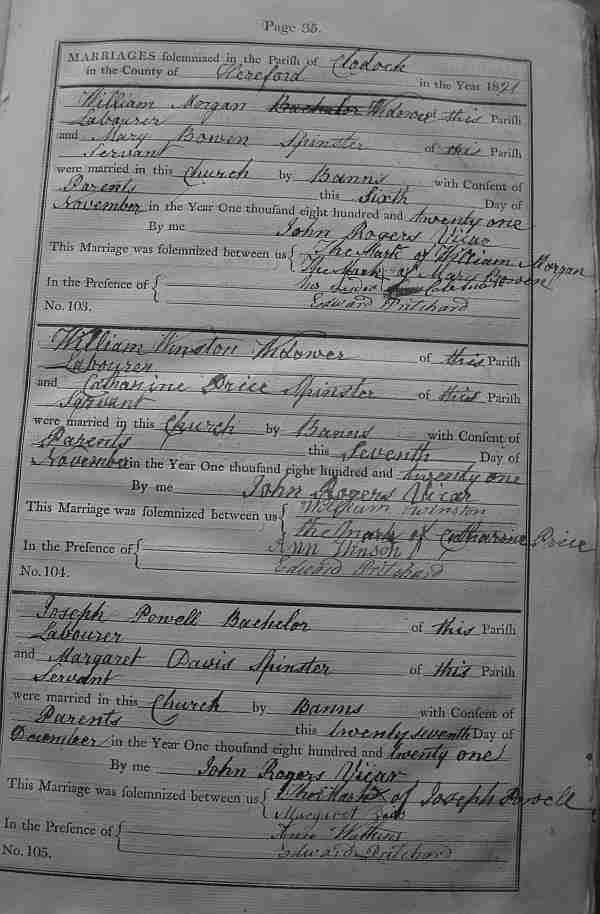 Page 35.
MARRIAGES solemnized in the Parish of Clodock
in the County of Hereford in the Year 1821
William Morgan Bachelor Widower of this Parish
Labourer
and Mary Bowen Spinster of this Parish
Servant
were married in this Church by Banns with Consent of
Parents this Sixth Day of
November in the Year One thousand eight hundred and twenty one
By me John Rogers Vicar
This Marriage was solemnized between us { The Mark of William Morgan
The Mark of Mary Bowen
In the Presence of {
Edward Pritchard
No. 103.
William Winston Widower of this Parish
Labourer
and Catharine Price Spinster of this Parish
Servant
were married in this Church by Banns with Consent of
Parents this Seventh Day of
November in the Year One thousand eight hundred and twenty one
By me John Rogers Vicar
This Marriage was solemnized between us { William Winston
The Mark of Catharine Price
In the Presence of { Ann
Edward Pritchard
No. 104.
Joseph Powell Bachelor of this Parish
Labourer
and Margaret Davis Spinster of this Parish
Servant
were married in this Church by Banns with Consent of
Parents this twenty seventh Day of
December in the Year One thousand eight hundred and twenty one
By me John Rogers Vicar
This Marriage was solemnized between us { The Mark of Joseph Powell
Margaret
In the Presence of { Watkins
Edward Pritchard
No. 105.